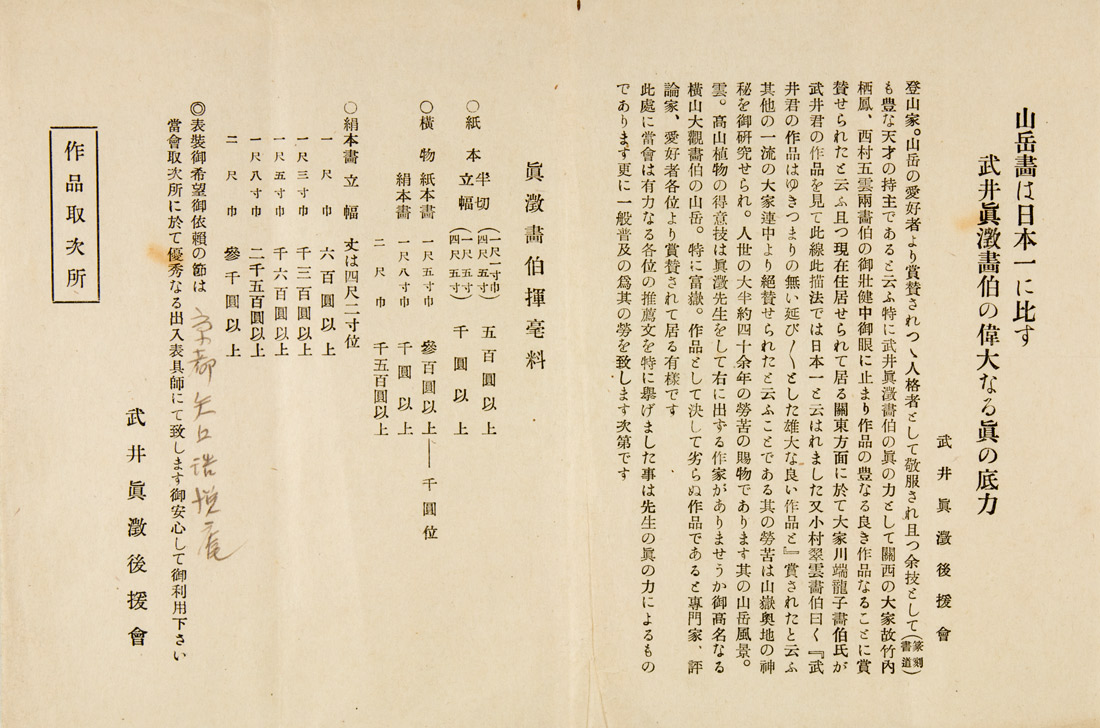 山岳畫は日本一に比す
武井眞澂畫伯の偉大なる眞の底力
武井眞澂後援會
登山家。山岳の愛好者より賞賛されつゝ人格者として敬服され且つ余技として(篆刻書道)
も豊な天才の持主であると云ふ特に武井眞澂畫伯の眞の力として關西の大家故竹内
栖鳳、西村五雲兩畫伯の御壯健中御眼に止まり作品の豊なる良き作品なることに賞
賛せられたと云ふ且つ現在住居せられて居る關東方面に於て大家川端龍子畫伯氏が
武井君の作品を見て此線此描法では日本一と云はれました又小村翠雲畫伯曰く『武
井君の作品はゆきつまりの無い延び〳〵とした雄大な良い作品と』賞されたと云ふ
其他の一流の大家連中より絕賛せられたと云ふことである其の勞苦は山嶽奥地の神
秘を御研究せられ。人世の大半約四十余年の勞苦の賜物であります其の山岳風景。
雲。高山植物の得意技は眞澂先生をして右に出する作家がありませうか御高名なる
横山大觀畫伯の山岳。特に富嶽。作品として決して劣らぬ作品であると專門家、評
論家、愛好者各位より賞賛されて居る有樣です
此處に當會は有力なる各位の推薦文を特に擧げました事は先生の眞の力によるもの
であります更に一般普及の爲其の勞を致します次第です
眞澂畫伯揮毫料
○紙本半切(一尺一寸巾四尺五寸)五百圓以上
立幅(一尺五寸四尺五寸)千圓以上
○橫物紙本書一尺五寸巾參百圓以上──千圓位
絹本書一尺八寸巾千圓以上
二尺巾千五百圓以上
○絹本書立幅丈は四尺二寸位
一尺巾六百圓以上
一尺三寸巾千三百圓以上
一尺五寸巾千六百圓以上
一尺八寸巾二千五百圓以上
二尺巾參千圓以上
◎表裝御希望御依賴の節は
當會取次所に於て優秀なる出入表具師にて致します御安心して御利用下さい
京都
武井眞澂後援會
作品取次所